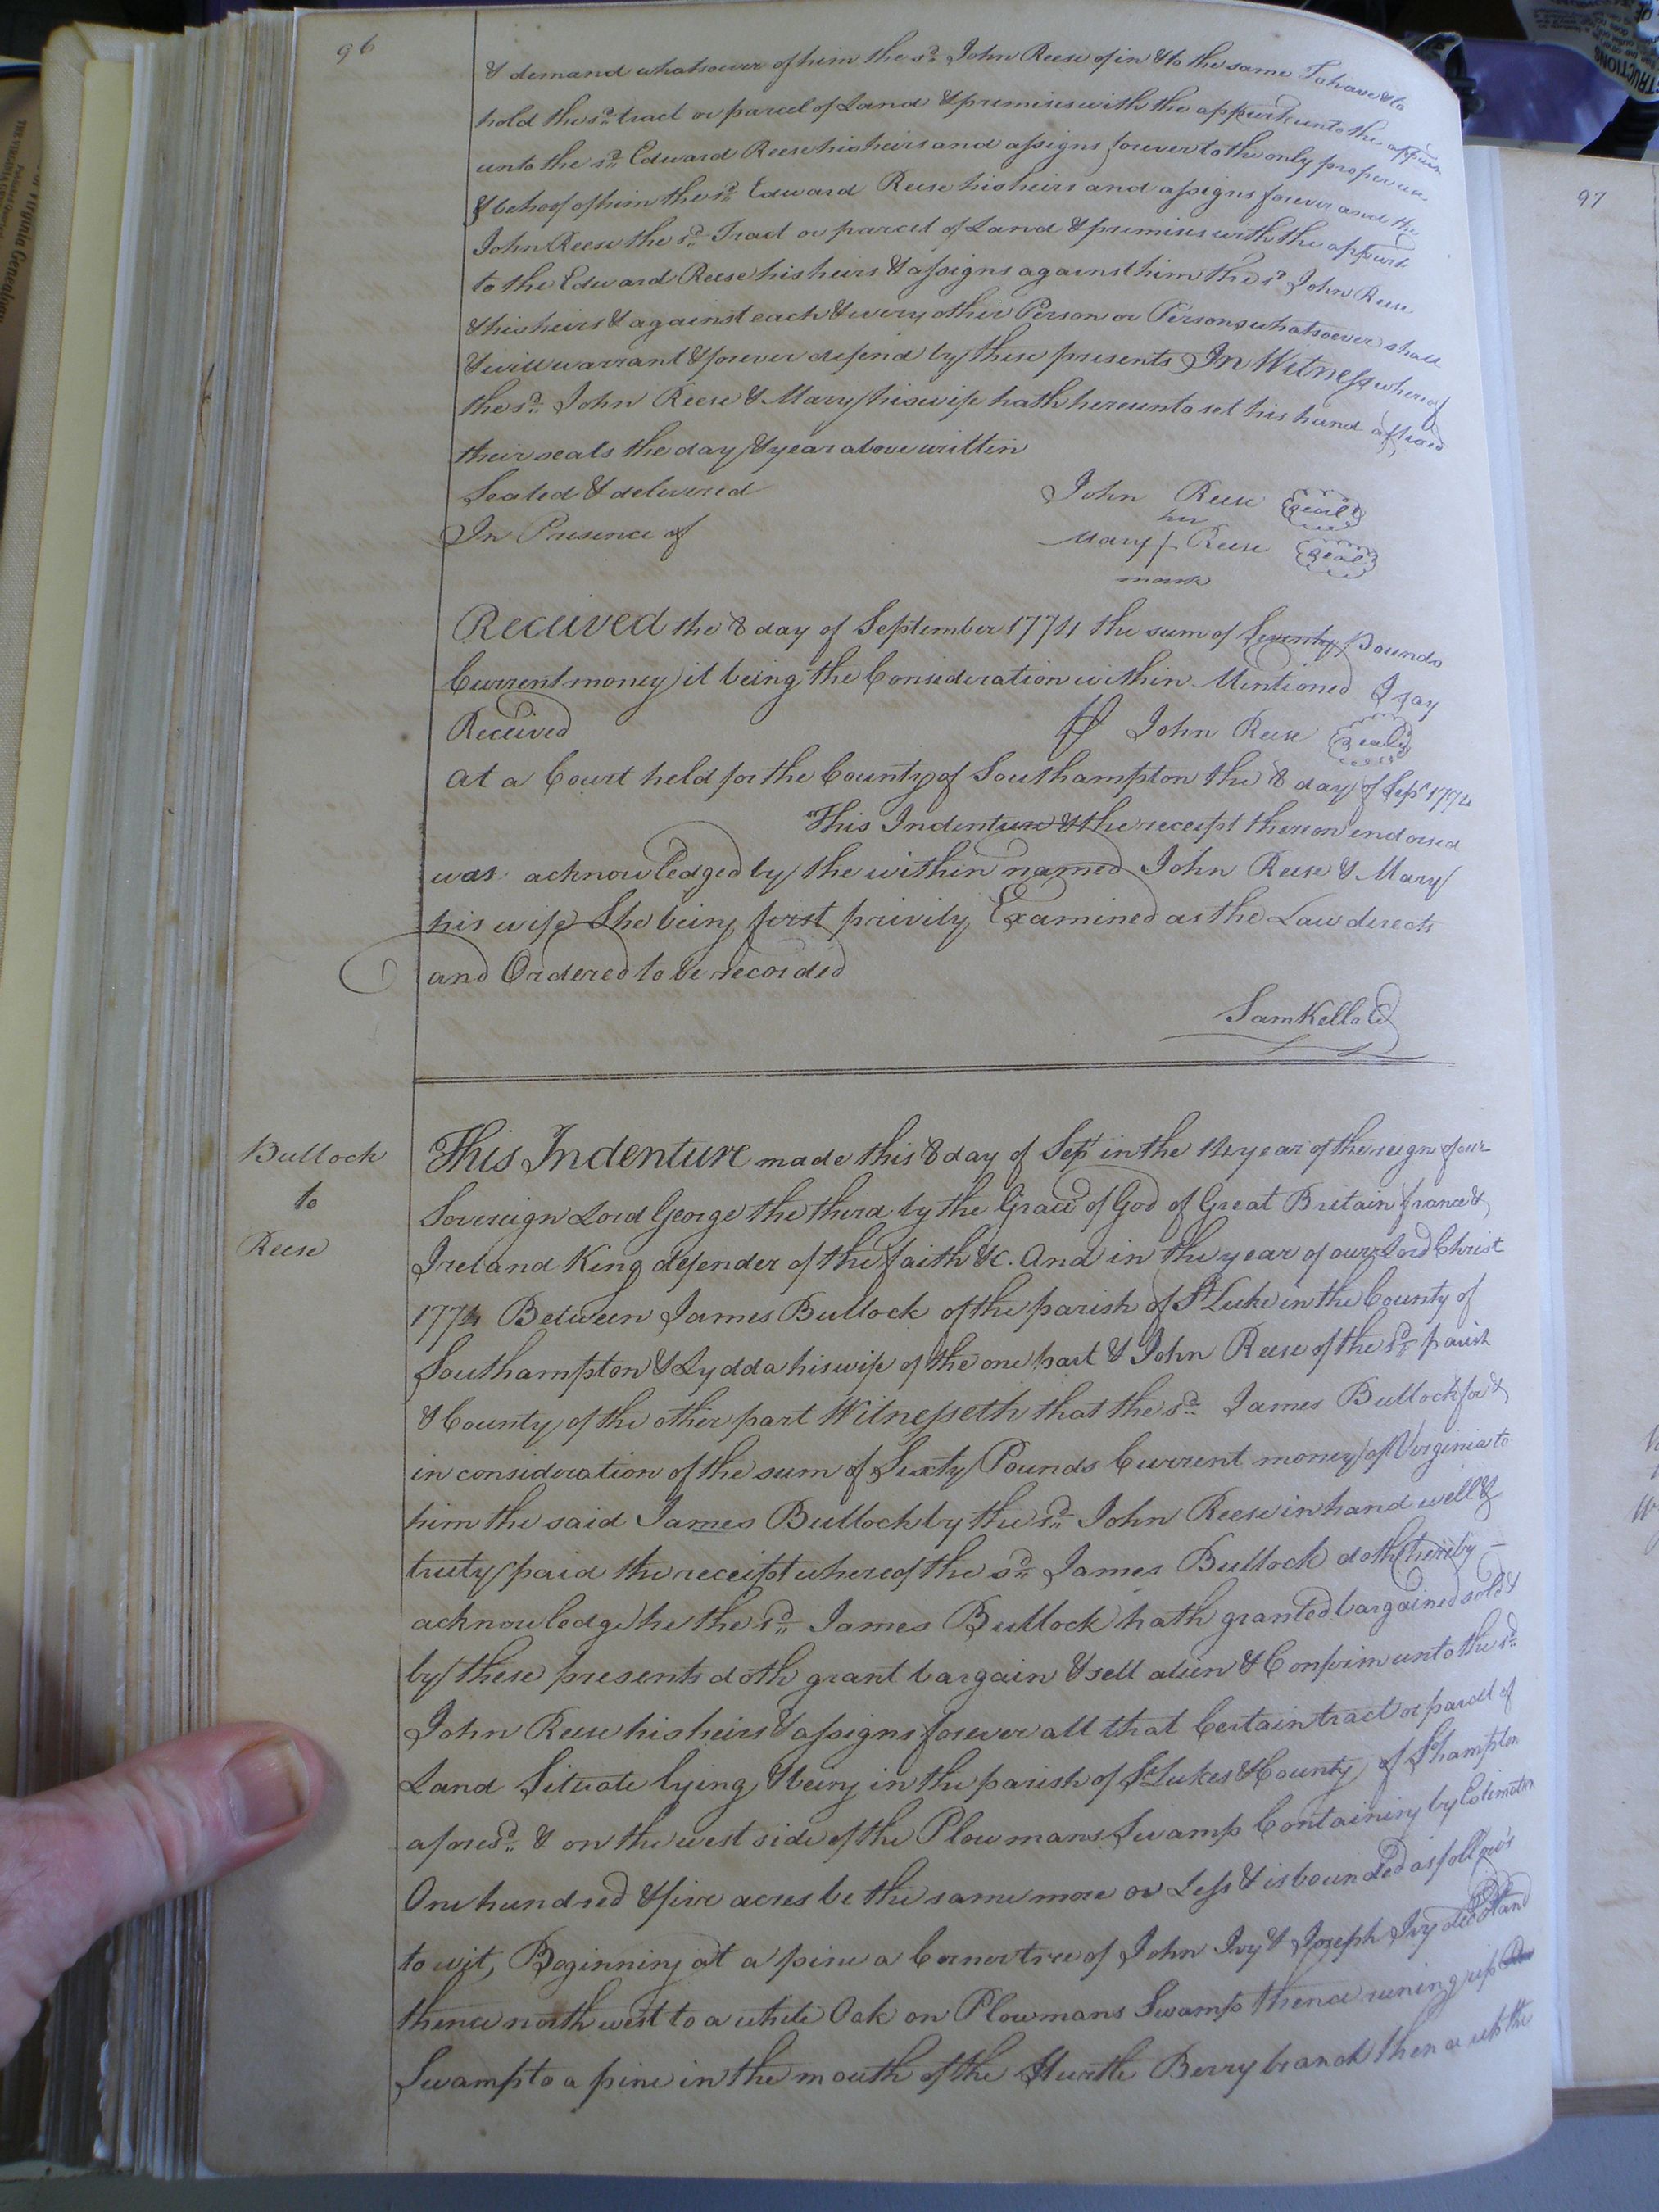 96
& demand whatsoever of him the sd. John Reese of in & to the same To have & to
hold the sd. tract or parcel of Land & premises with the appurts unto the appurts
unto the sd. Edward Reese his heirs and assigns forever to the only proper use
& behoof of him the sd. Edward Reese his heirs and assigns forever and the
John Reese the sd. Tract or parcel of Land & premises with the appurts
to the Edward Reese his heirs & assigns against him the sd. John Reese
& his heirs & against each & every other Person or Persons whatsoever shall
& will warrant & forever defend by these presents In Witness whereof
the sd. John Reese & Mary his wife hath hereunto set his hand affixed
their seals the day & year above written
Sealed & delivered John Reese Seal
In Presence of her
Mary + Reese Seal
mark
Received the 8 day of September 1774 the sum of Seventy Pounds
Current money it being the Consideration within Mentioned I say
Received John Reese Seal
At a Court held for the County of Southampton the 8 day of Sept 1774
This Indenture & the receipt thereon endorsed
was acknowledged by the within named John Reese & Mary
his wife She being first privily Examined as the Law directs
and Ordered to be recorded
Sam Kello C
Bullock
to
Reese
This Indenture made this 8 day of Sept in the 14 year of the reign of our
Sovereign Lord George the third by the Grace of God of Great Britain france &
Ireland King defender of the faith &c. And in the year of our Lord Christ
1774 Between James Bullock of the parish of St Luke in the County of
Southampton & Lydda his wife of the one part & John Reese of the sd. parish
& County of the other part Witnesseth that the sd. James Bullock for &
in consideration of the sum of Sixty Pounds Current money of Virginia to
him the said James Bullock by the sd. John Reese in hand well &
truly paid the receipt whereof the sd. James Bullock doth hereby
acknowledge he the sd. James Bullock hath granted bargained sold &
by these presents doth grant bargain & sell alien & Confirm unto the sd.
John Reese his heirs & assigns forever all that Certain tract or parcel of
Land Situate lying & being in the parish of St Lukes & County of S'hampton
aforesd. & on the west side of the Plowmans Swamp Containing by Estimation
One hundred & five acres be the same more or Less & is bounded as follows
to wit, Beginning at a pine a Corner tree of John Ivy & Joseph Ivy decd Land
thence north west to a white Oak on Plowmans Swamp thence runing up
Swamp to a pine in the mouth of the Hurtle Berry branch thence up the
97